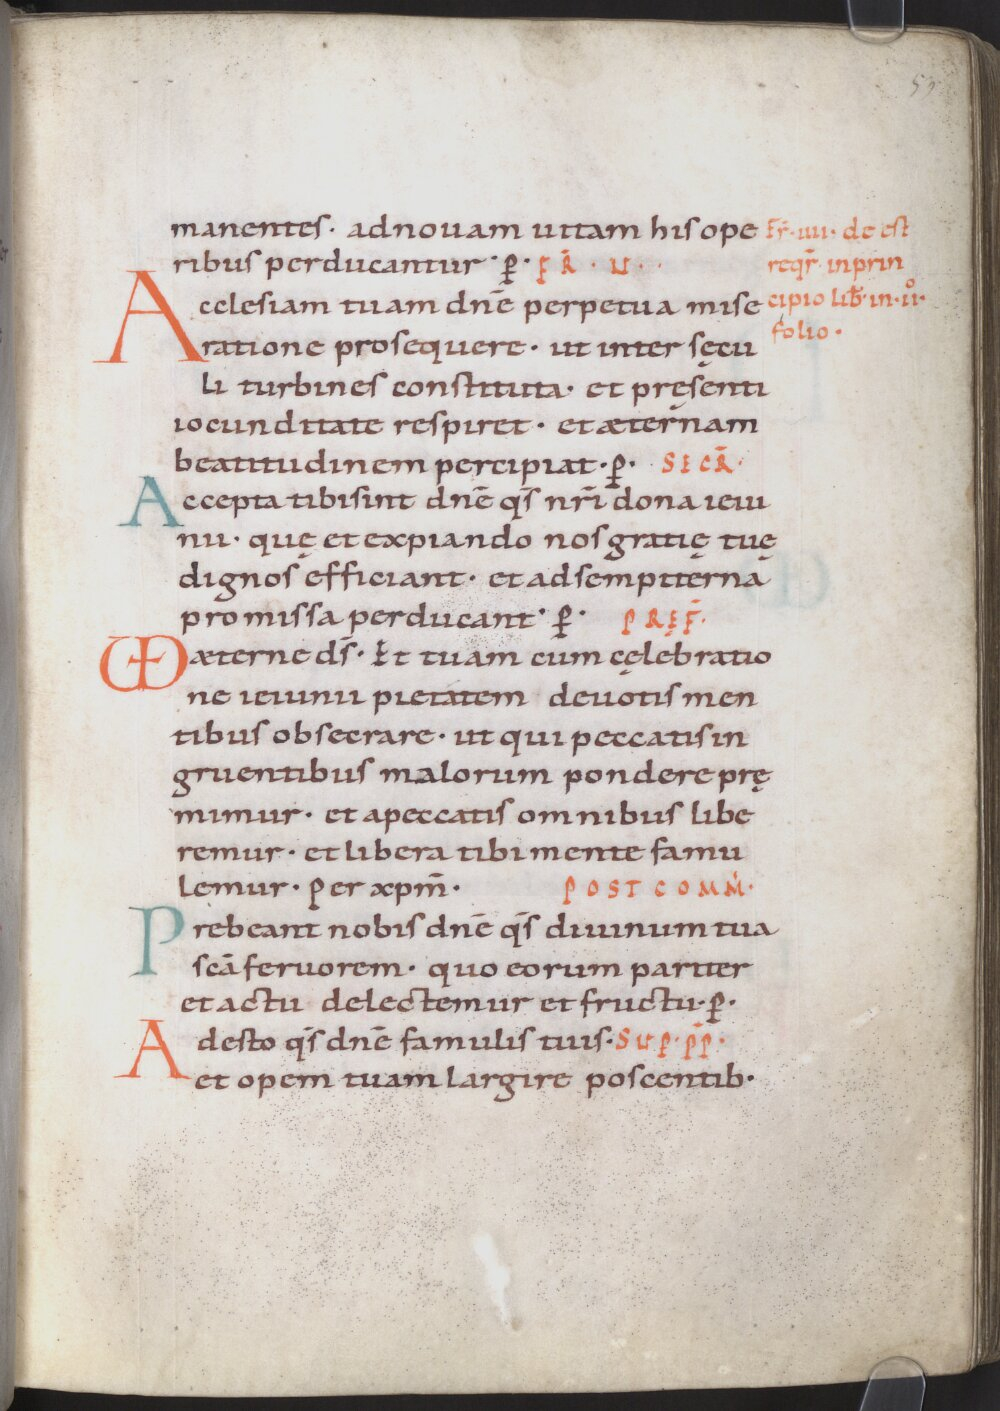 manentes· ad nouam uitam his ope
ribus perducantur·p̲· FR̄·U··
Acclesiam tuam dnē perpetua mise
ratione prosequere· ut inter sęcu
li turbines constituta· et pręsenti
iocunditate respiret· et æternam
beatitudinem percipiat·p̲· SECR̄·
Accepta tibi sint dnē qs̄ nr̄i dona ieiu
nii· quę et expiando nos gratię tuę
dignos efficiant· et ad sempiterna
promissa perducant·p̲· PRĘF̄·
UD æterne ds̄· Et tuam cum cęlebratio
ne ieiunii pietatem deuotis men
tibus obsecrare· ut qui peccatis in
gruentibus malorum pondere prę
mimur· et a peccatis omnibus libe
remur· et libera tibi mente famu
lemur· Per xpm̄· POST COMM̄·
Prebeant nobis dnē qs̄ diuinum tua
scā feruorem· quo eorum pariter
et actu delectemur et fructu·p̲·
Adesto qs̄ dnē famulis tuis· SUP·PP̄·
et opem tuam largire poscentib·
Fr̄·iiii· de est
reqr̄· in prin
cipio lib̄·in·ii°·
folio·